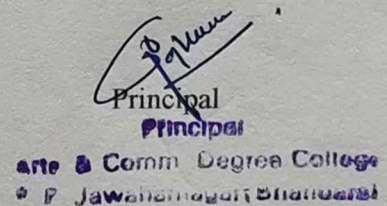 Principal
Principal
arts & Comm Degree College
P Jawaharnagar (Bhandara)